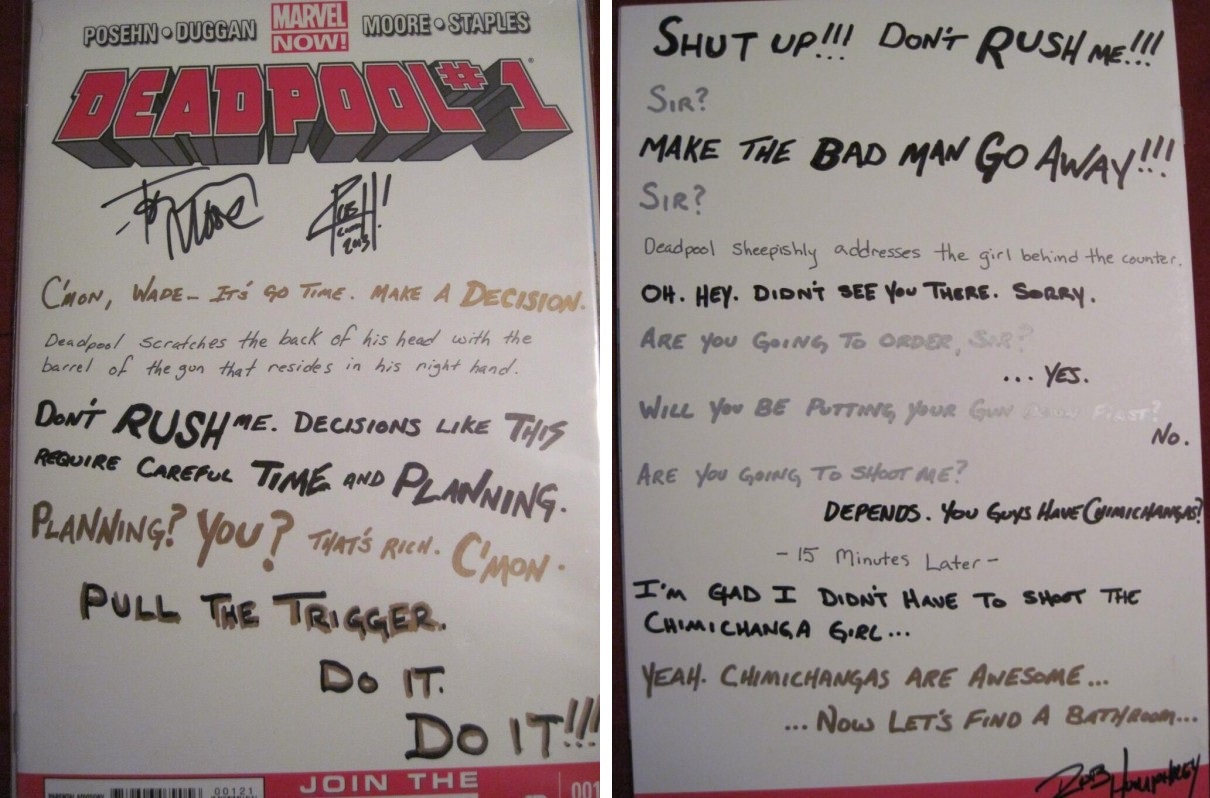 POSEHN • DUGGAN
MARVEL
NOW!
MOORE • STAPLES
DEADPOOL #1
C'MON, WADE– IT'S GO TIME. MAKE A DECISION.
Deadpool scratches the back of his head with the
barrel of the gun that resides in his right hand.
DON'T RUSH ME. DECISIONS LIKE THIS
REQUIRE CAREFUL TIME AND PLANNING.
PLANNING? YOU? THAT'S RICH. C'MON.
PULL THE TRIGGER.
DO IT.
DO IT!!!
00121
JOIN THE
001
SHUT UP!!! DON'T RUSH ME!!!
SIR?
MAKE THE BAD MAN GO AWAY!!!
SIR?
Deadpool sheepishly addresses the girl behind the counter.
OH. HEY. DIDN'T SEE YOU THERE. SORRY.
ARE YOU GOING TO ORDER, SIR?
... YES.
WILL YOU BE PUTTING YOUR GUN DOWN FIRST?
NO.
ARE YOU GOING TO SHOOT ME?
DEPENDS. YOU GUYS HAVE CHIMICHANGAS?
– 15 Minutes Later –
I'M GLAD I DIDN'T HAVE TO SHOOT THE
CHIMICHANGA GIRL...
YEAH. CHIMICHANGAS ARE AWESOME...
...NOW LET'S FIND A BATHROOM...
ROB HUMPHREY